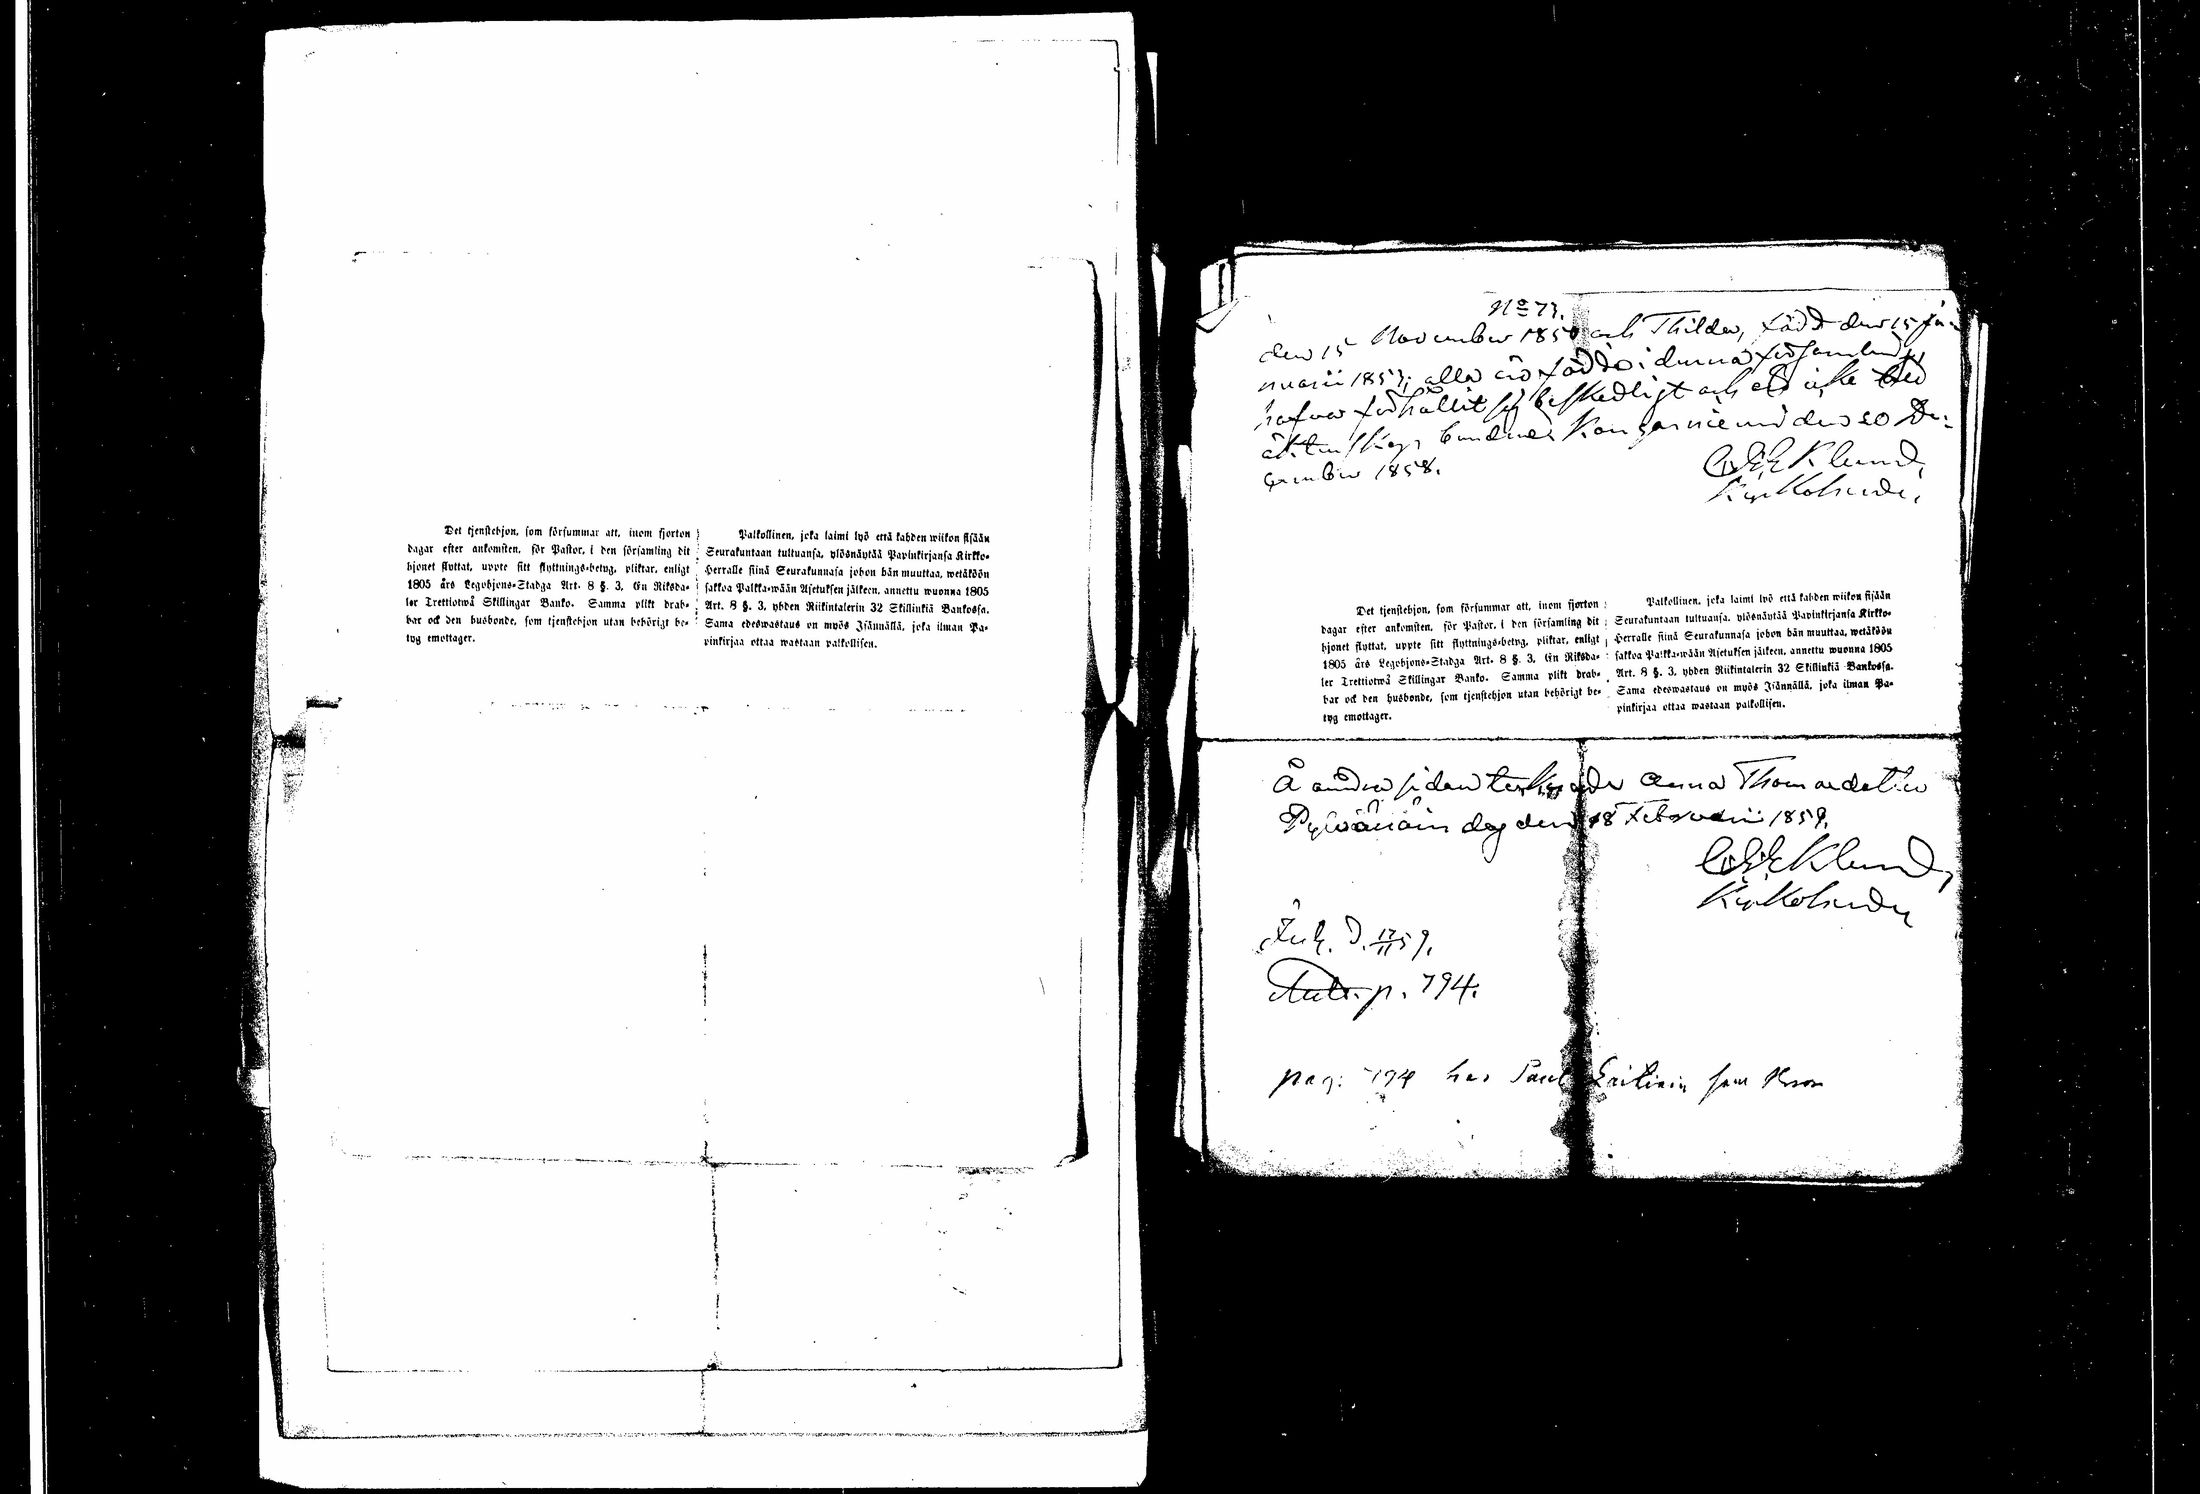 Det tjenstehjon, som försummar att, inom fjorton
dagar efter ankomsten, för Pastor, i den församling dit
hjonet flyttat, uppte sitt flyttnings-betyg, pliktar, enligt
1805 års Legohjons-Stadga Art. 8 §. 3, En Riksda-
ler Trettiotwå Skillingar Banko. Samma plikt drab-
bar ock den husbonde, som tjenstehjon utan behörigt be-
tyg emottager.
Palkollinen, joka laimi lyö että kahden wiikon sisään
Seurakuntaan tultuansa, ylösnäytää Papinkirjansa Kirkko-
Herralle siinä Seurakunnasa johon hän muuttaa, wetäköön
sakkoa Palkka-wään Asetuksen jälkeen, annettu wuonna 1805
Art. 8 §. 3, yhden Riikintalerin 32 Skillinkiä Bankossa.
Sama edeswastaus on myös Isännällä, joka ilman Pa-
pinkirjaa ottaa wastaan palkollisen.
No 73.
den 15 November 1850 och Thilda, född den 15 Ja-
nuarii 1853; alla äro födde i denna församling
hafva förhållit sig beskedligt och äro icke till
äktenskap bundne. Kongasniemi den 20 De-
cember 1858.
Kyrkoherde.
Det tjenstehjon, som försummar att, inom fjorton
dagar efter ankomsten, för Pastor, i den församling dit
hjonet flyttat, uppte sitt flyttnings-betyg, pliktar, enligt
1805 års Legohjons-Stadga Art. 8 §. 3, En Riksda-
ler Trettiotwå Skillingar Banko. Samma plikt drab-
bar ock den husbonde, som tjenstehjon utan behörigt be-
tyg emottager.
Palkollinen, joka laimi lyö että kahden wiikon sisään
Seurakuntaan tultuansa, ylösnäytää Papinkirjansa Kirkko-
Herralle siinä Seurakunnasa johon hän muuttaa, wetäköön
sakkoa Palkka-wään Asetuksen jälkeen, annettu wuonna 1805
Art. 8 §. 3, yhden Riikintalerin 32 Skillinkiä Bankossa.
Sama edeswastaus on myös Isännällä, joka ilman Pa-
pinkirjaa ottaa wastaan palkollisen.
Å andra sidan tecknade Anna Thomasdotter
Pylvänäin dog den 18 Februarii 1859.
Kyrkoherde
D. 12/11 59.
p. 794.
pag: 794 har Paul som